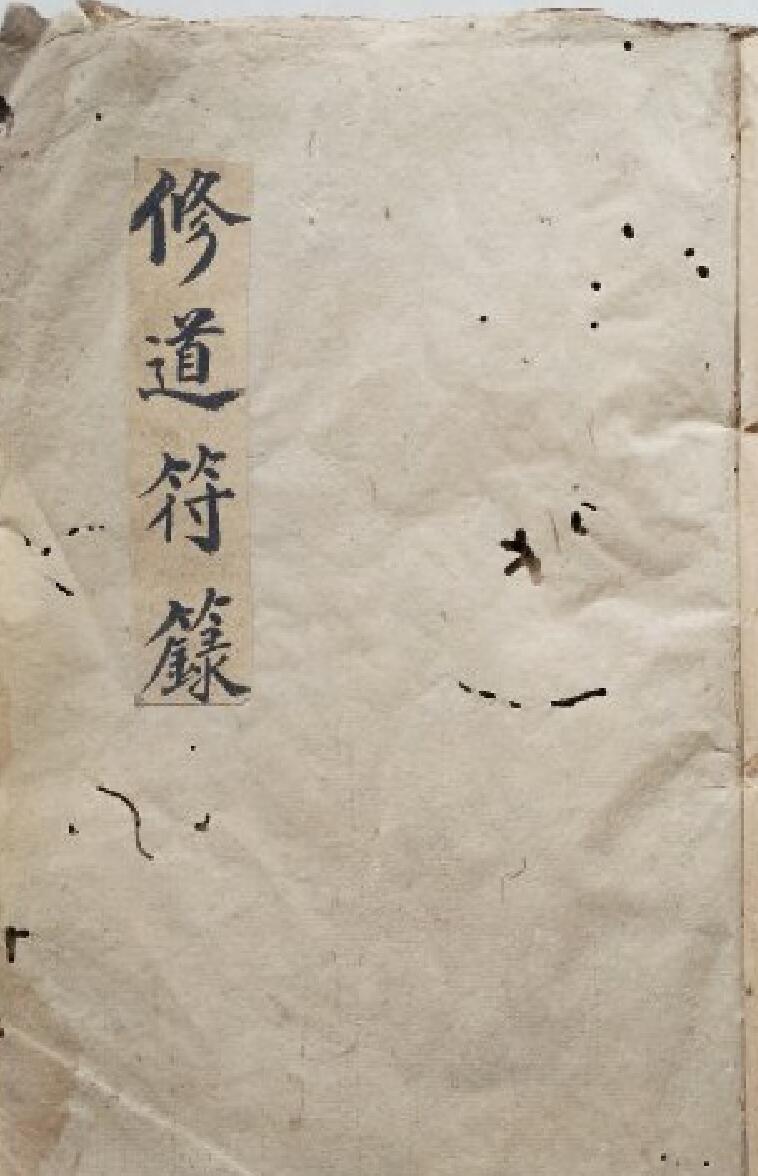 修道符籙